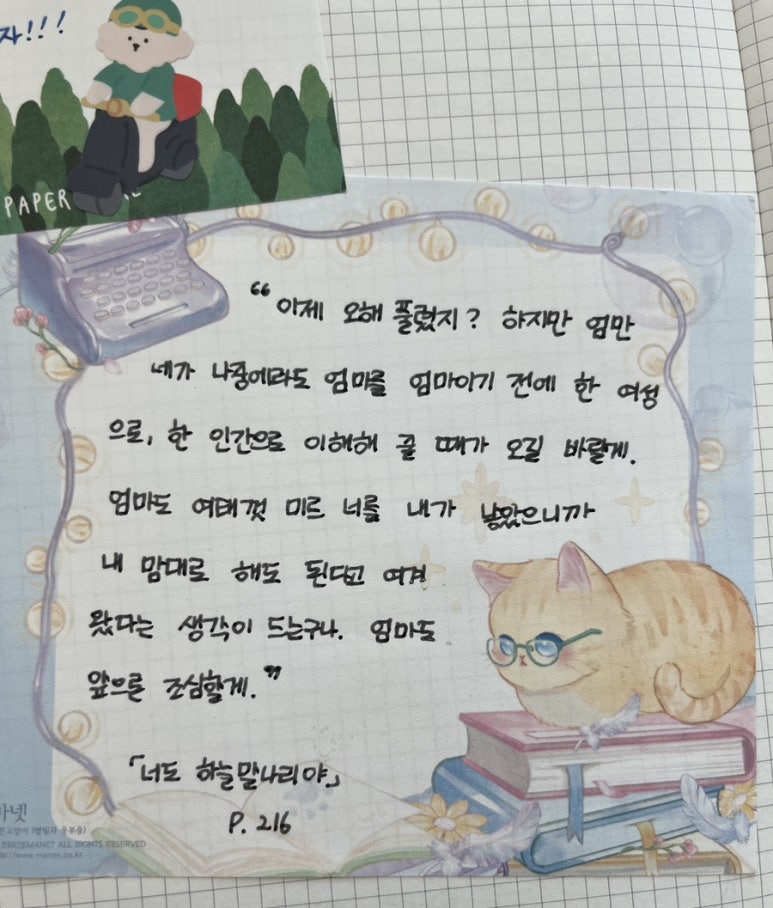 자!!!
PAPER
“이제 오해 풀렸지? 하지만 엄만
네가 나중에라도 엄마를 엄마이기 전에 한 여성
으로, 한 인간으로 이해해 줄 때가 오길 바랄게.
엄마도 여태껏 미르 너를 내가 낳았으니까
내 맘대로 해도 된다고 여겨
왔다는 생각이 드는구나. 엄마도
앞으론 조심할게.”
「너도 하늘말나리야」
P. 216
마넷
ALL RIGHTS RESERVED
http://www.manet.co.kr